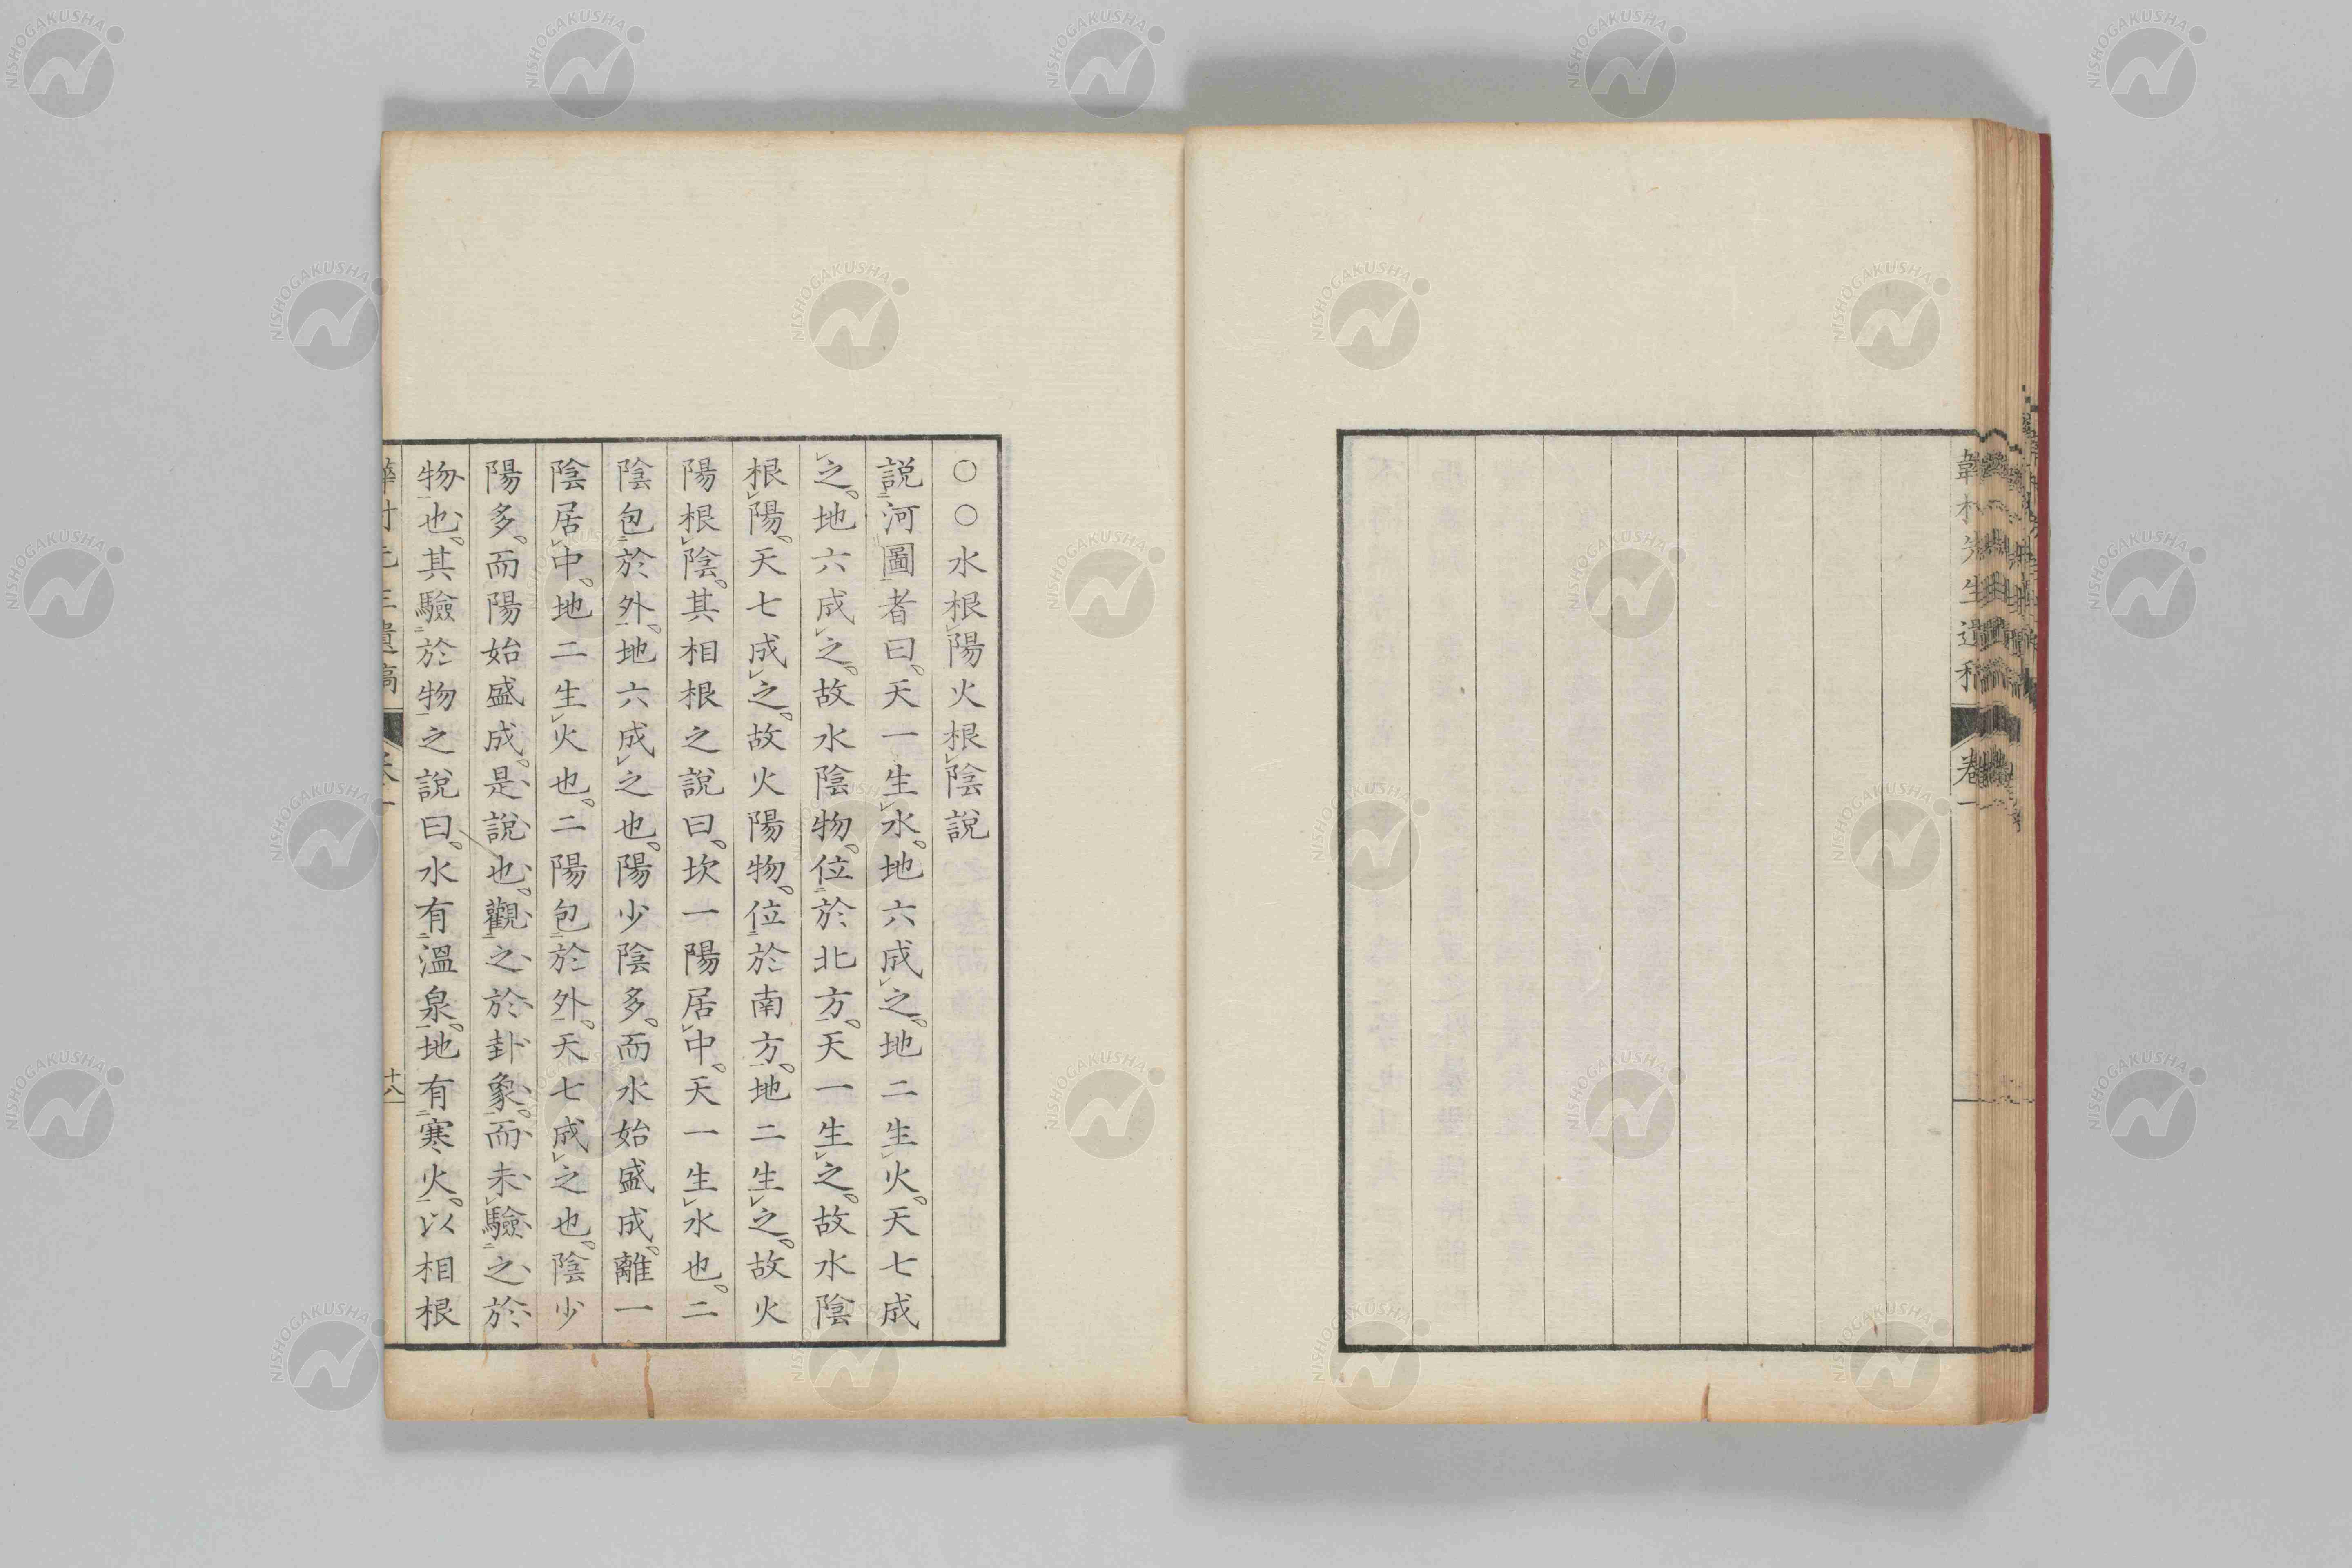 韋村先生遺稿 卷一
○○水根陽火根陰說
説河圖者曰。天一生水。地六成之。地二生火。天七成
之。地六成之。故水陰物。位於北方。天一生之。故水陰
根陽。天七成之。故火陽物。位於南方。地二生之。故火
陽根陰。其相根之說曰。坎一陽居中。天一生水也。二
陰包於外。地六成之也。陽少陰多。而水始盛成。離一
陰居中。地二生火也。二陽包於外。天七成之也。陰少
陽多。而陽始盛成。是說也。觀之於卦象。而未驗之於
物也。其驗於物之說曰。水有溫泉。地有寒火。以相根
韡村先生遺稿 卷一 十八
NISHOGAKUSHA